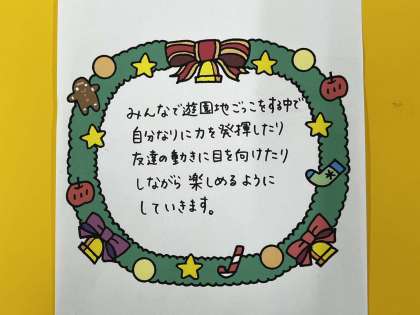 みんなで遊園地ごっこをする中で
自分なりに力を発揮したり
友達の動きに目を向けたり
しながら楽しめるように
していきます。